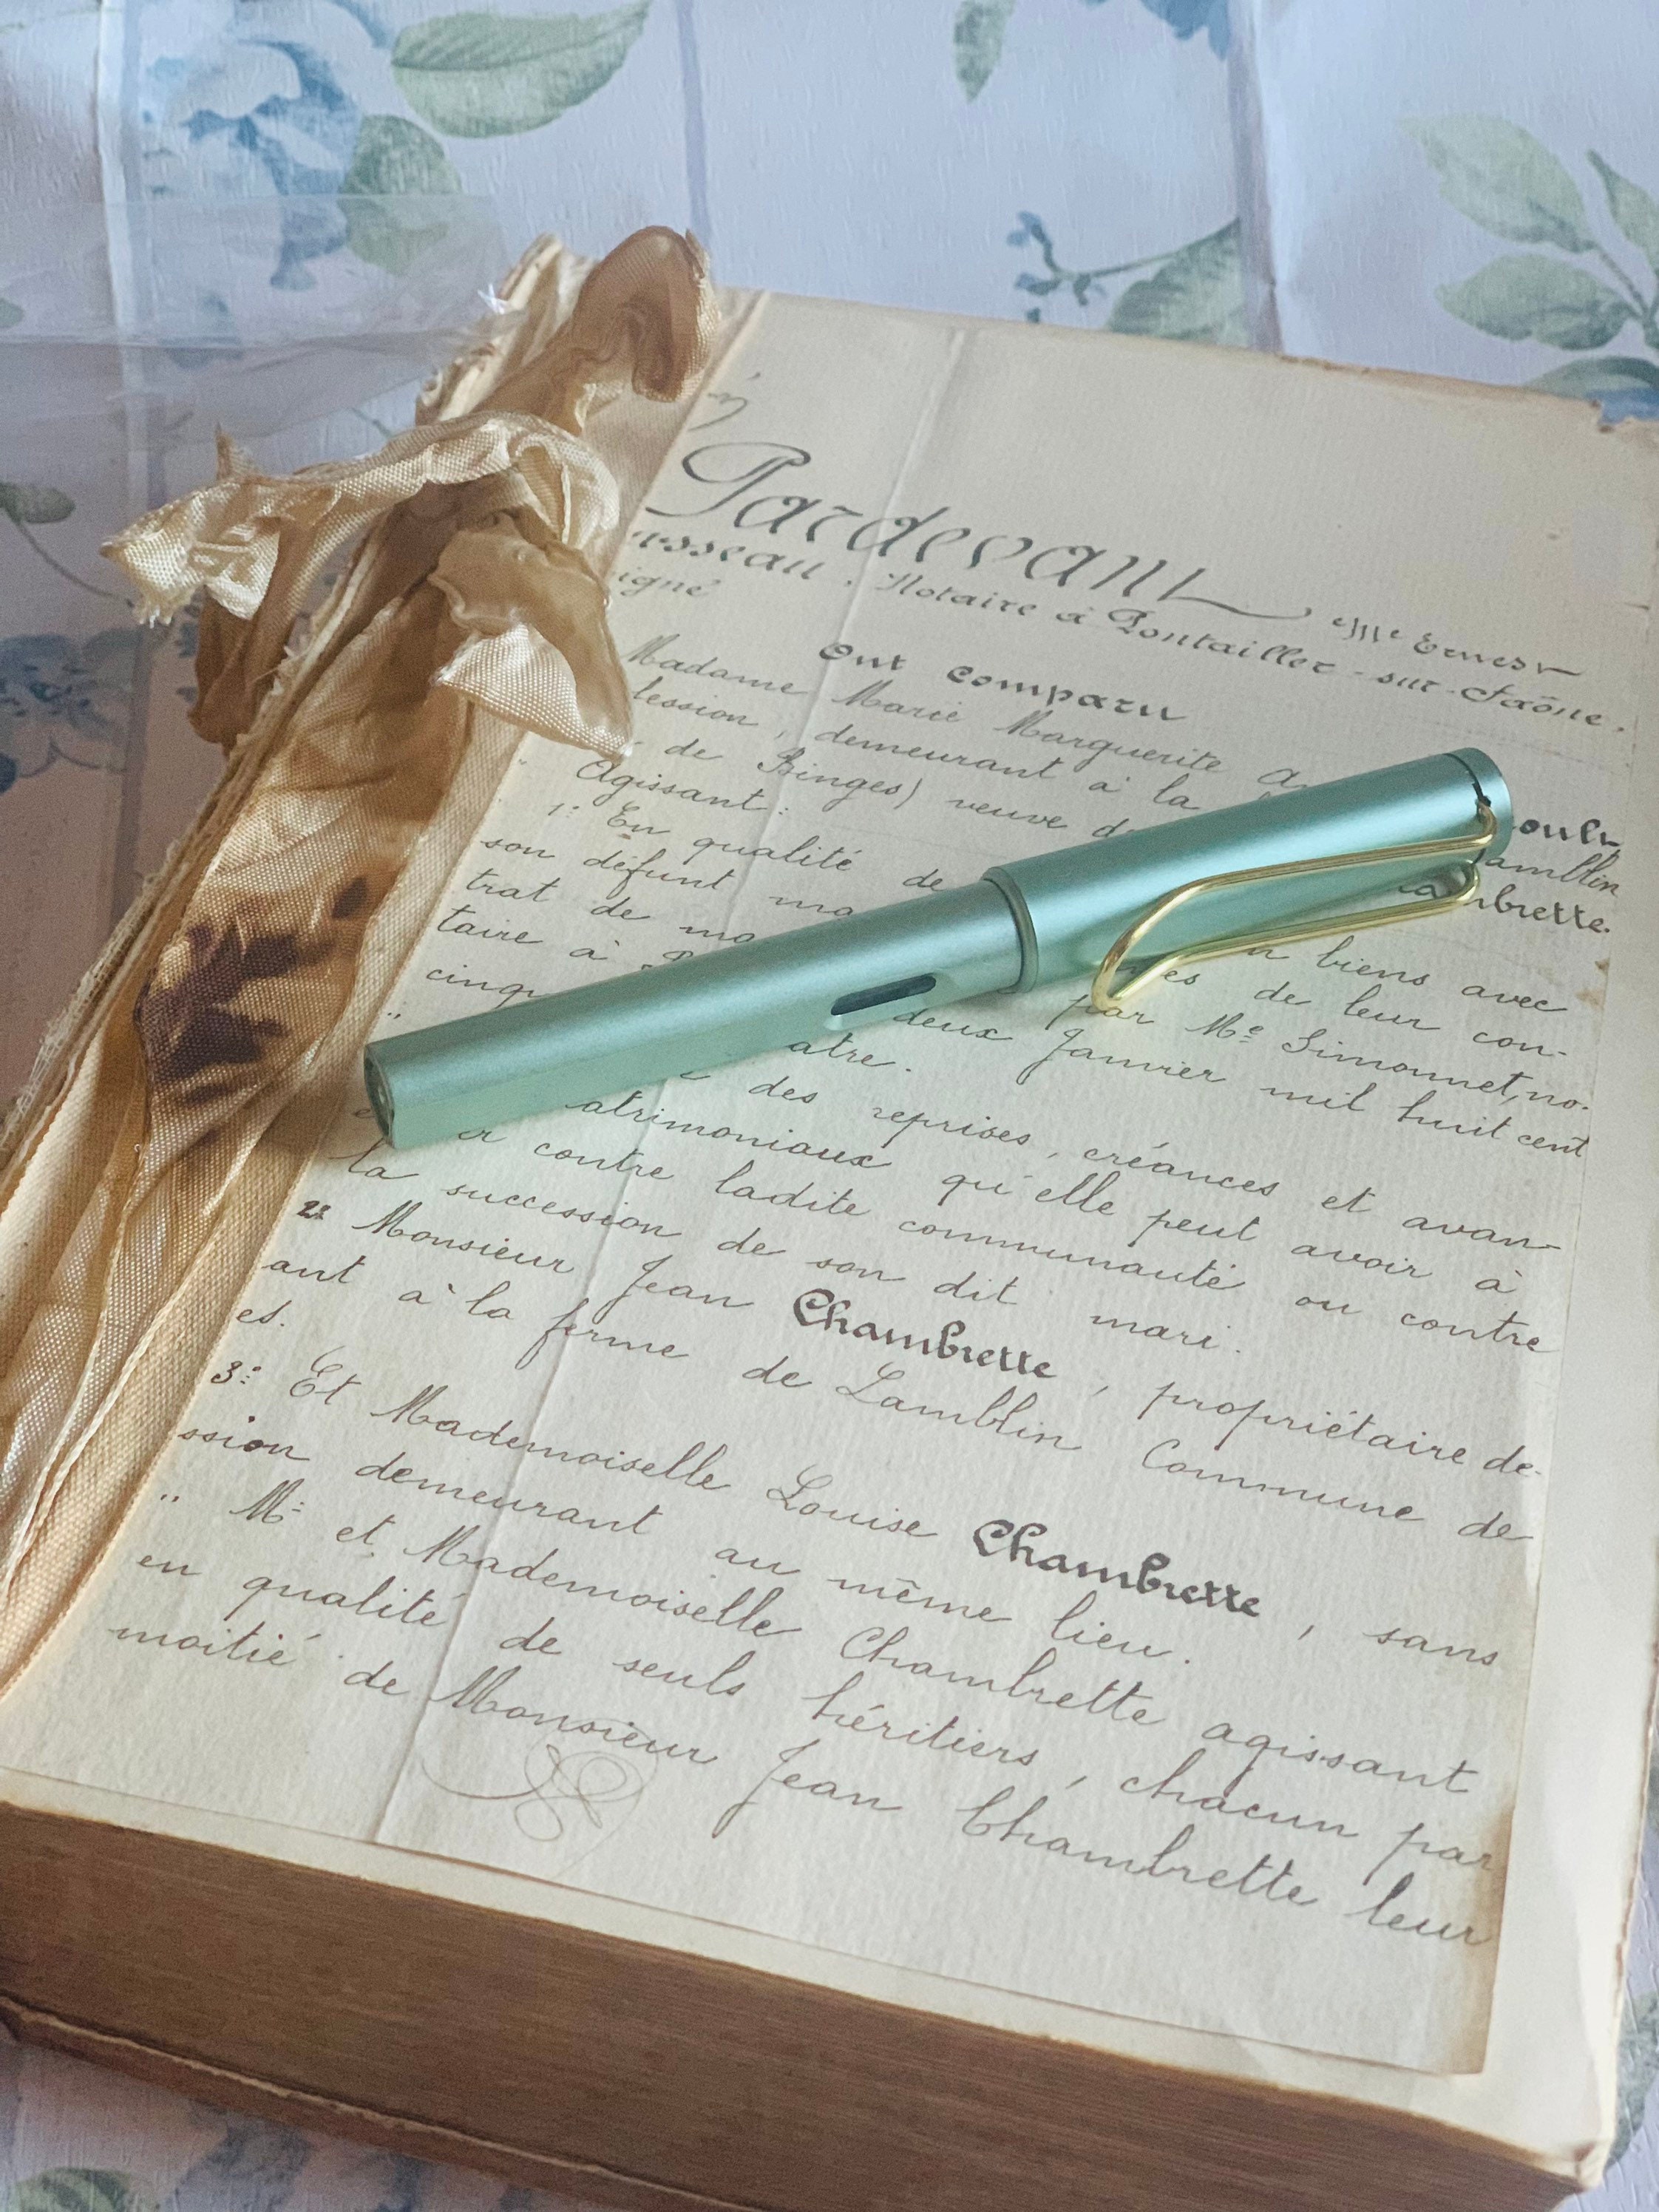 Pardevant Me Ernest
usseau, Notaire à Pontailler-sur-Saône.
igné
Ont comparu
Madame Marie Marguerite oult
fession, demeurant à la Lamblin
de Binges) veuve d ambrette.
Agissant:
1º En qualité de n biens avec
son défunt ma es de leur con-
trat de ma par Me Simonnet, no-
taire à deux Janvier mil huit cent
cinqu atre.
" des reprises, créances et avan-
atrimoniaux qu'elle peut avoir à
er contre ladite communauté ou contre
la succession de son dit mari.
2º Monsieur Jean Chambrette, propriétaire de-
ant à la ferme de Lamblin Commune de
es.
3º Et Mademoiselle Louise Chambrette, sans
ssion demeurant au même lieu.
" Mr et Mademoiselle Chambrette agissant
en qualité de seuls héritiers, chacun par
moitié de Monsieur Jean Chambrette leur